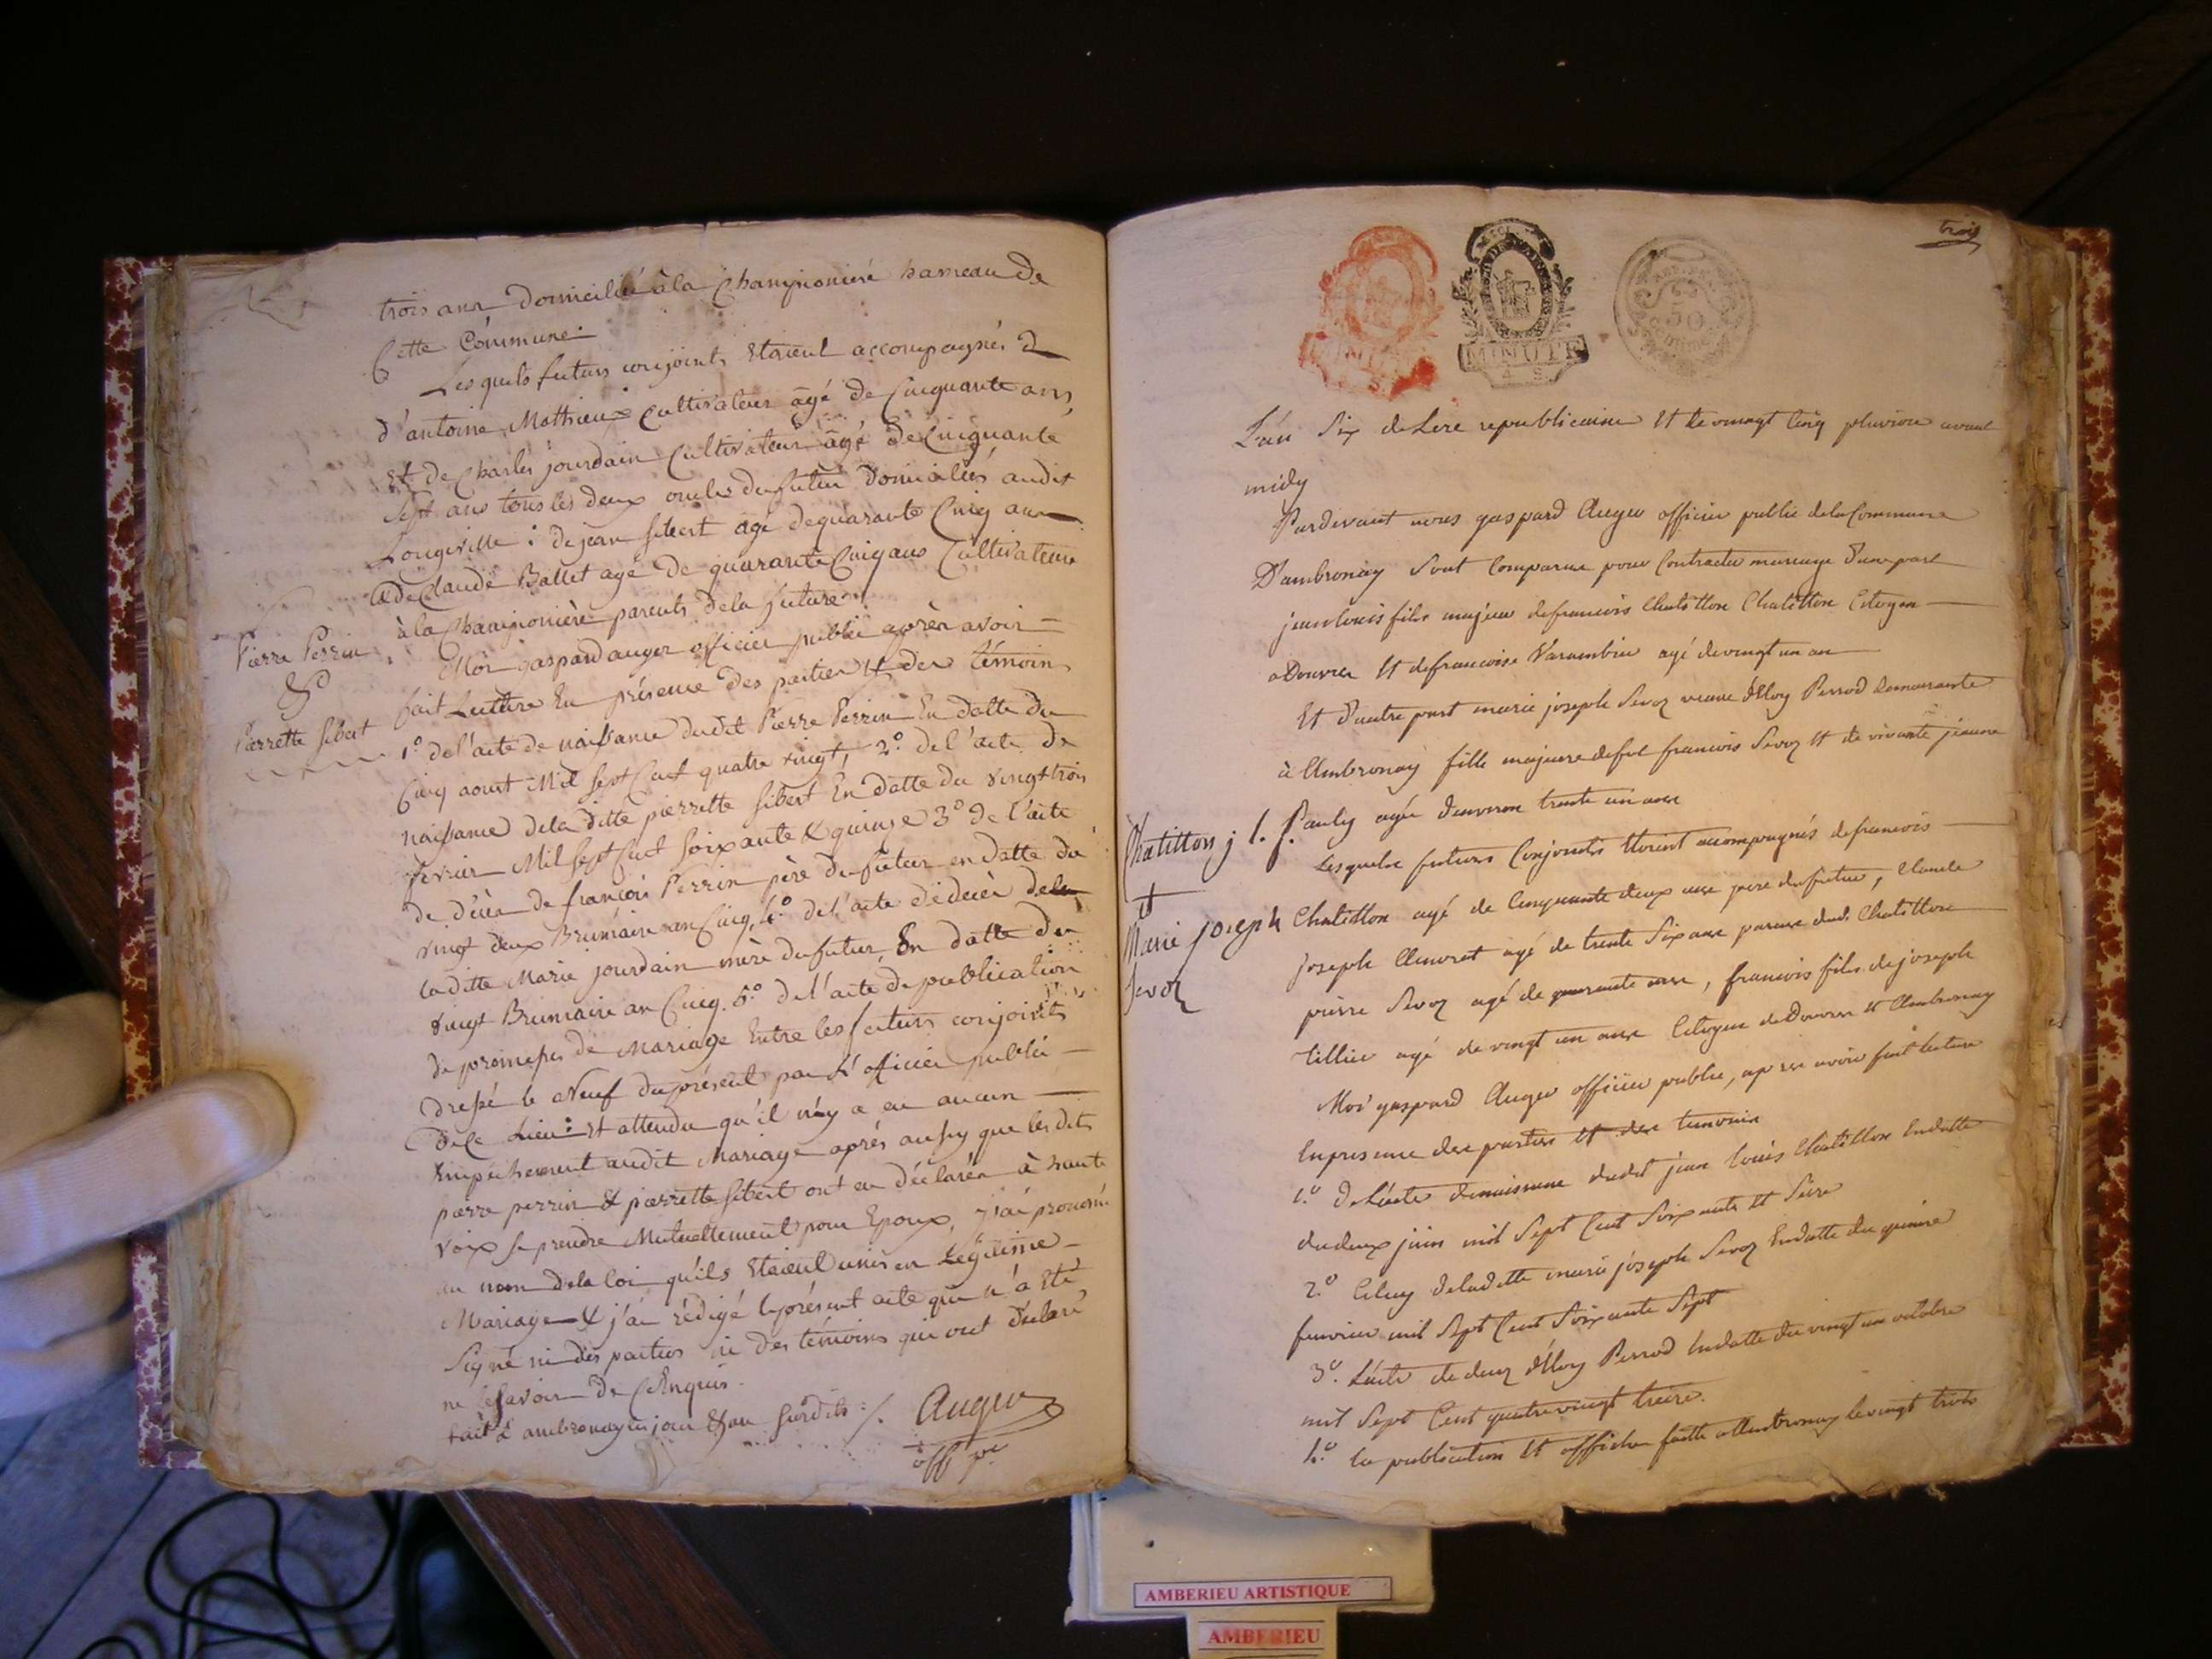 trois ans domiciliée à la Championiere hameau de
Cette Commune.
Les quels futurs conjoints Etoient accompagnés d
d'antoine Mathieux Cultivateur âgé de Cinquante ans,
Et de Charles jourdain Cultivateur âgé de Cinquante
Sept ans tous les deux oncles du futur domiciliés audit
Longeville : de jean sibert âgé de quarante Cinq ans
& de Claude Ballet agé de quarante Cinq ans Cultivateurs
à la Championière parents de la future.
Pierre Perrin
&
Pierrette sibert
Moi gaspard auger officier public après avoir
fait Lecture En présence des parties Et des témoins
1.º de l'acte de naissance dudit Pierre Perrin En datte du
Cinq aoust Mil sept Cent quatre vingt, 2.º de l'acte de
naissance de la ditte pierrette sibert En datte du vingt trois
fevrier Mil sept Cent soixante & quinze 3º de l'acte
de décès de françois Perrin père du futur en datte du
vingt deux Brumaire an Cinq, 4.º de l'acte de décès de la
laditte Marie jourdain mère du futur, En datte du
vingt Brumaire an Cinq. 5.º de l'acte de publication
de promesses de Mariage Entre les futurs conjoints
dressé le Neuf du présent par L'officier public
de Ce Lieu : Et attendu qu'il n'y a eu aucun
Empechement audit Mariage après aussy que les dits
pierre perrin & pierrette sibert ont eu déclarés à haute
voix se prendre Mutuellement pour Epoux, j'ai prononcé
au nom de la loi qu'ils Etoient unis en Légitime
Mariage & j'ai rédigé le présent acte qui n'a Eté
Signé ni des parties ni des témoins qui ont déclaré
ne le savoir de Ce Enquis.
fait à ambronay les jour & an susdits ./. Auger
off. p.
trois
MINUTE
MINUTE
50
L'an Six de Lere republicaine Et le vingt Cinq pluviose avant
midy
Pardevant nous gaspard Auger officier public de la Commune
D'ambronay Sont Comparus pour Contracter mariage d'une part
jean louis fils majeur de francois Chatillon Citoyen
a Douvres Et de francoise Varambier agé de vingt un an
Et d'autre part marie joseph Sevoz veuve d'Eloy Perrod demeurante
à Ambronay fille majeure de fut francois Sevoz Et de vivante jeanne
Pauly agée d'environ trente un ans
Chatillon j l. f.
et
Marie joseph
Sevoz
Lesquels futurs Conjoints Etoient accompagnés de francois
Chatillon agé de Cinquante deux ans pere du futur, Claude
joseph agé de trente Six ans parens dud. Chatillon
pierre Sevoz agé de quarante ans, francois fils de joseph
Tillier agé de vingt un ans Citoyens de Douvres Et Ambronay
Moi gaspard Auger officier public, apres avoir fait lecture
En presence des parties Et des temoins
1.º De L'acte de naissance dudit jean louis Chatillon En datte
du deux juin mil Sept Cent Soixante Et Seize
2.º Celuy de laditte marie joseph Sevoz En datte du quinze
fevrier mil Sept Cent Soixante Sept
3.º L'acte de deces d'Eloy Perrod En datte du vingt un octobre
mil Sept Cent quatre vingt treize.
4.º la publication Et affiche faitte a Ambronay le vingt trois
AMBERIEU ARTISTIQUE
AMBERIEU